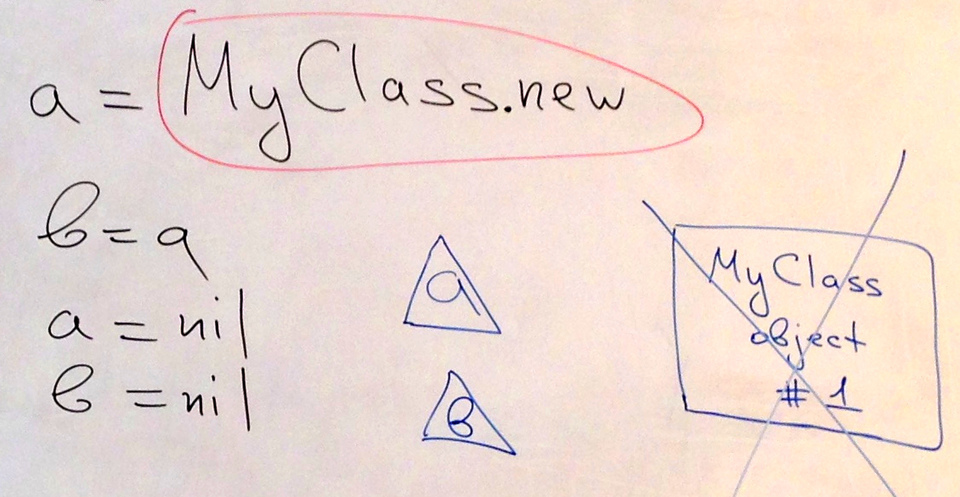 a = MyClass.new
b = a
a = nil
b = nil
a
b
MyClass
object
# 1